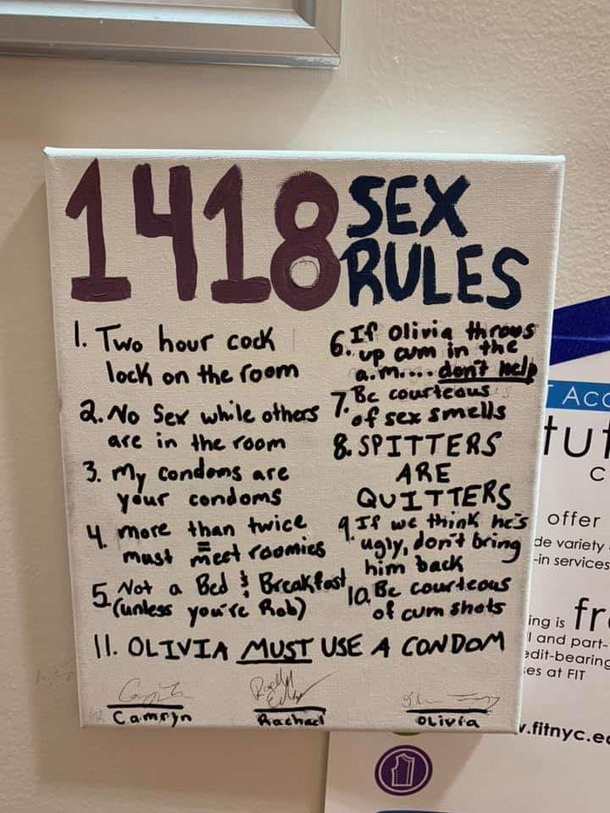 1418 SEX
RULES
1. Two hour cock
lock on the room
2. No Sex while others
are in the room
3. My condoms are
your condoms
4. more than twice
= must meet roomies
5. Not a Bed & Breakfast
(unless you're Rob)
6. If Olivia throws
up cum in the
a.m.... don't help
7. Be courteous
of sex smells
8. SPITTERS
ARE
QUITTERS
9 If we think he's
ugly, don't bring
him back
10. Be courteous
of cum shots
11. OLIVIA MUST USE A CONDOM
Camryn
Rachael
Olivia
Acc
tut
C
offer
de variety
-in services
ing is fr
l and part-
edit-bearing
es at FIT
v.fitnyc.ed